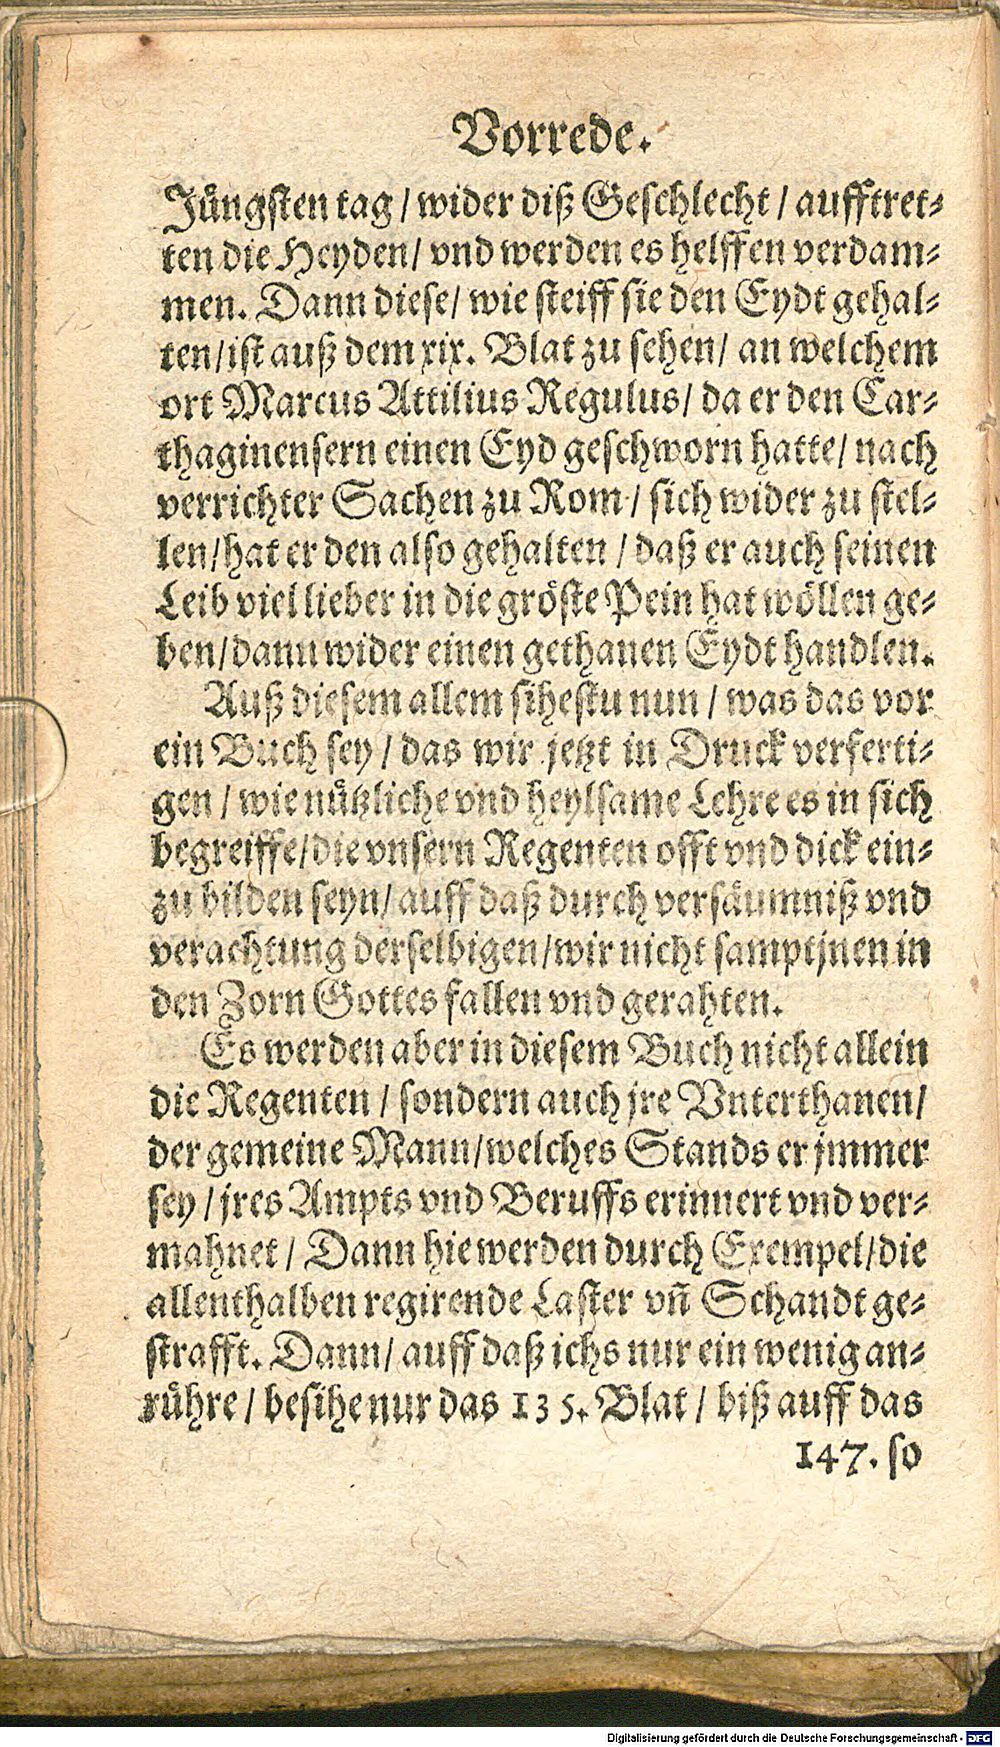 Vorrede.
Jüngsten tag / wider diß Geschlecht / aufftret-
ten die Heyden / vnd werden es helffen verdam-
men. Dann diese / wie steiff sie den Eydt gehal-
ten / ist auß dem xix. Blat zu sehen / an welchem
ort Marcus Attilius Regulus / da er den Car-
thaginensern einen Eyd geschworn hatte / nach
verrichter Sachen zu Rom / sich wider zu stel-
len / hat er den also gehalten / daß er auch seinen
Leib viel lieber in die gröste Pein hat wöllen ge-
ben / dann wider einen gethanen Eydt handlen.
Auß diesem allem sihestu nun / was das vor
ein Buch sey / das wir jetzt in Druck verferti-
gen / wie nützliche vnd heylsame Lehre es in sich
begreiffe / die vnsern Regenten offt vnd dick ein-
zu bilden seyn / auff daß durch versäumniß vnd
verachtung derselbigen / wir nicht sampt jnen in
den Zorn Gottes fallen vnd gerahten.
Es werden aber in diesem Buch nicht allein
die Regenten / sondern auch jre Vnterthanen /
der gemeine Mann / welches Stands er jmmer
sey / jres Ampts vnd Beruffs erinnert vnd ver-
mahnet / Dann hie werden durch Exempel / die
allenthalben regirende Laster vñ Schandt ge-
strafft. Dann / auff daß ichs nur ein wenig an-
rühre / besihe nur das 135. Blat / biß auff das
147. so
Digitalisierung gefördert durch die Deutsche Forschungsgemeinschaft - DFG